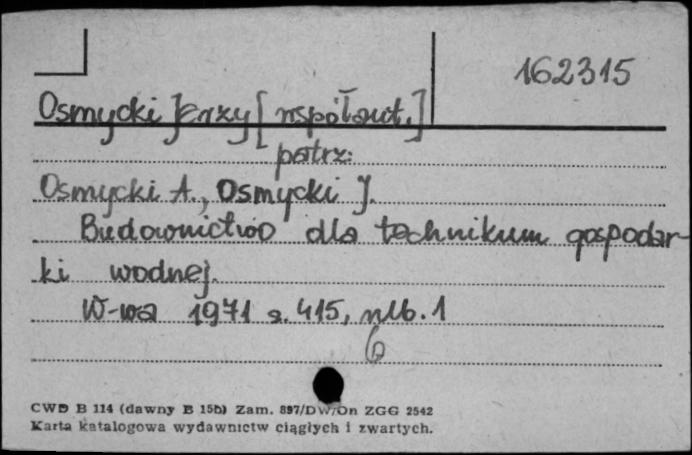 162315
Osmycki Jerzy [współaut.]
patrz:
Osmycki A., Osmycki J.
Budownictwo dla technikum gospodar-
ki wodnej.
W-wa 1971 s. 415, nlb. 1
6
CWD B 114 (dawny B 15b) Zam. 897/DW/On ZGG 2542
Karta katalogowa wydawnictw ciągłych i zwartych.